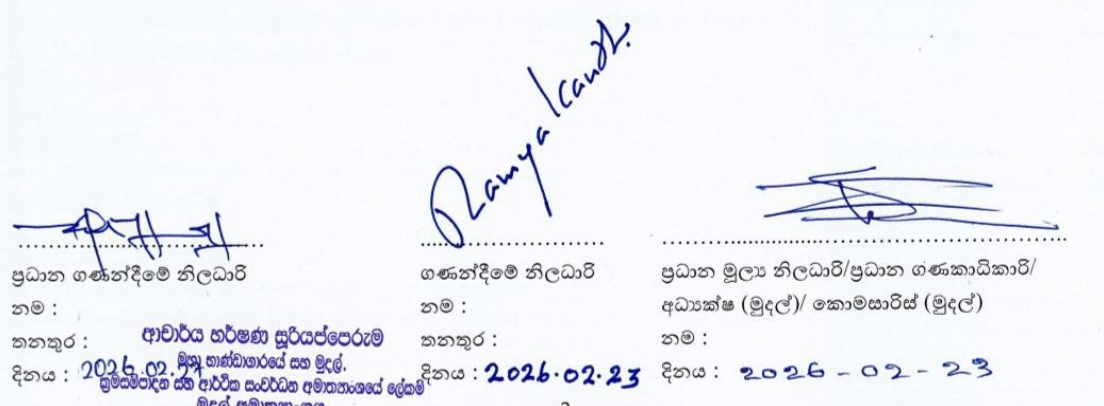 Ramya Kanth.
ප්‍රධාන ගණන්දීමේ නිලධාරි
නම :
තනතුර :
ආචාර්ය හර්ෂණ සූරියප්පෙරුම
මහා භාණ්ඩාගාරයේ සහ මුදල්,
ක්‍රමසම්පාදන සහ ආර්ථික සංවර්ධන අමාත්‍යාංශයේ ලේකම්
මුදල් අමාත්‍යාංශය
දිනය : 2026.02.
ගණන්දීමේ නිලධාරි
නම :
තනතුර :
දිනය : 2026.02.23
ප්‍රධාන මූල්‍ය නිලධාරි/ප්‍රධාන ගණකාධිකාරි/
අධ්‍යක්ෂ (මුදල්)/ කොමසාරිස් (මුදල්)
නම :
දිනය : 2026 - 02 - 23